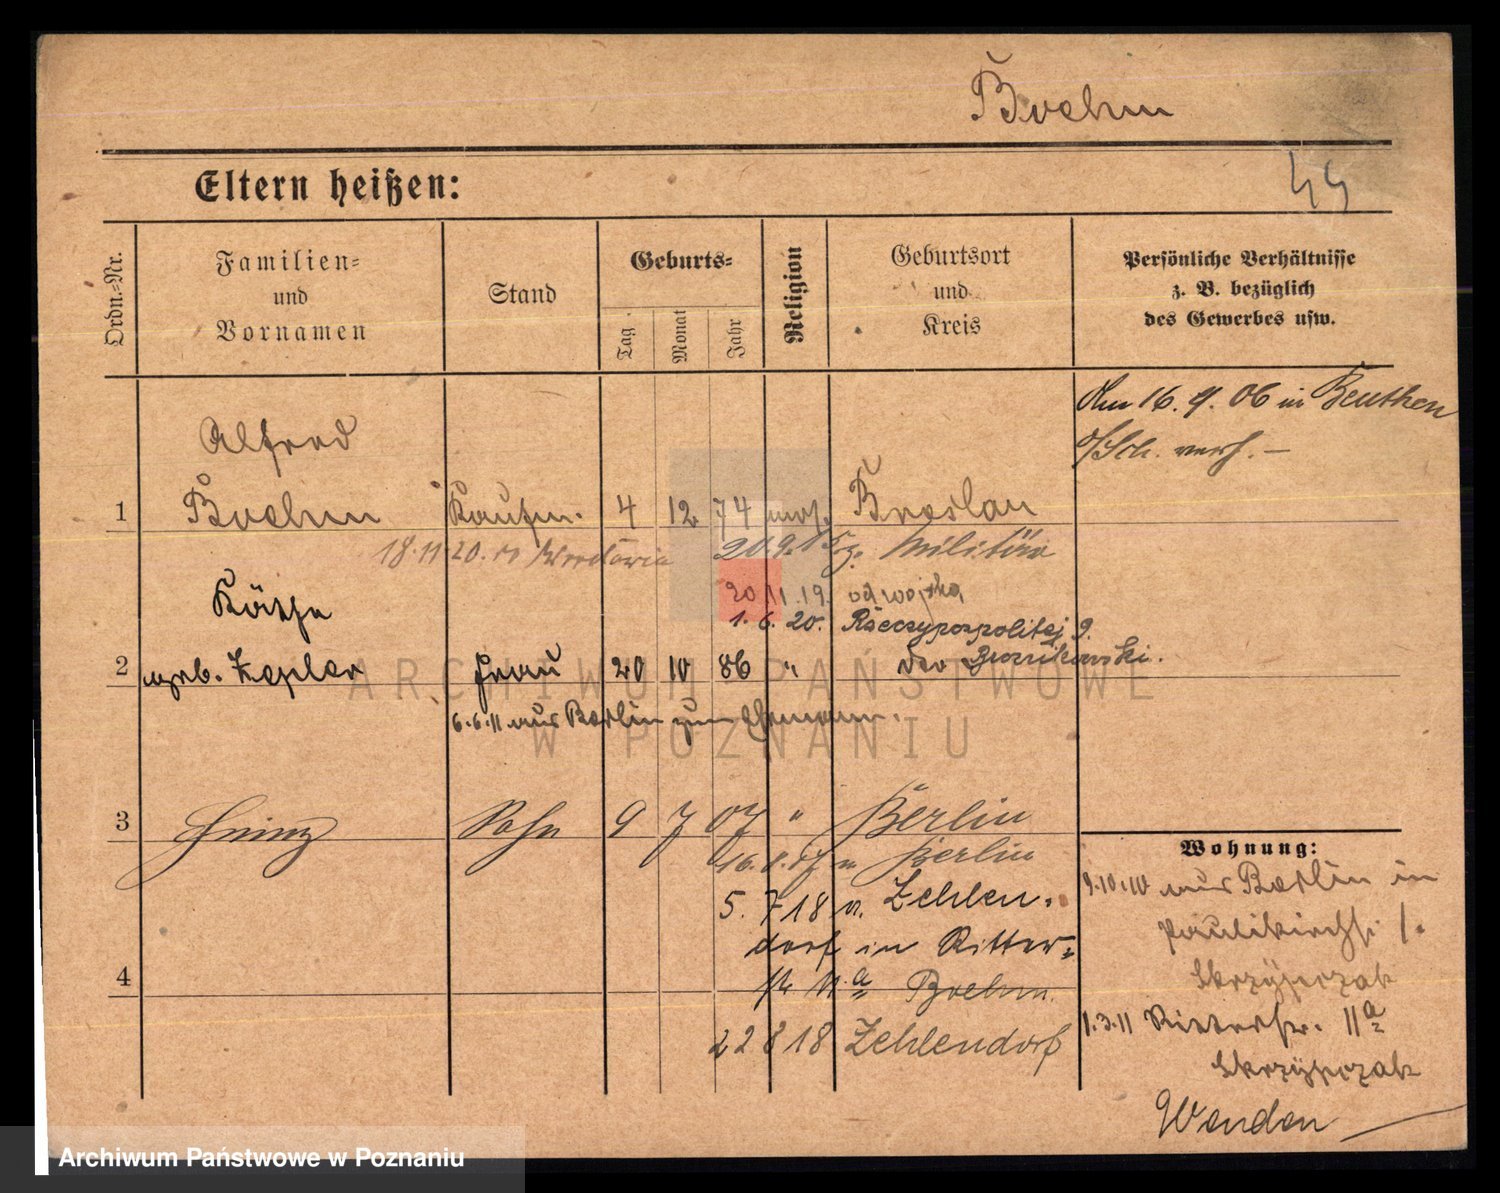 Boehm
44
Eltern heißen:
Ordn.-Nr.
Familien-
und
Vornamen
Stand
Geburts-
Tag
Monat
Jahr
Religion
Geburtsort
und
Kreis
Persönliche Verhältnisse
z. B. bezüglich
des Gewerbes usw.
Am 16. 9. 06 in Beuthen
O/Sch. verh. —
Alfred
1 Boehm Kaufm. 4 12 74 mos. Breslau
18.11.20. n
20.9.15 z. Militär
20 11.19. od wojska
1.6.20. Rzeczypospolitej 9.
Käthe
2 geb. Kepler Frau 20 10 86 "
6.6.11 aus Berlin zum Ehemann.
3 Heinz Sohn 9 7 07 " Berlin
16.8.17 n Berlin
5. 7 18 v. Zehlen-
dorf in Ritter-
str 11a Boehm.
4
22 8 18 Zehlendorf
Wohnung:
9.10.10 aus Berlin in
Paulikirchstr 1.
Skrzypczak
1.3.11 Ritterstr. 11a
Skrzypczak
Wenden —
ARCHIWUM PAŃSTWOWE
W POZNANIU
Archiwum Państwowe w Poznaniu